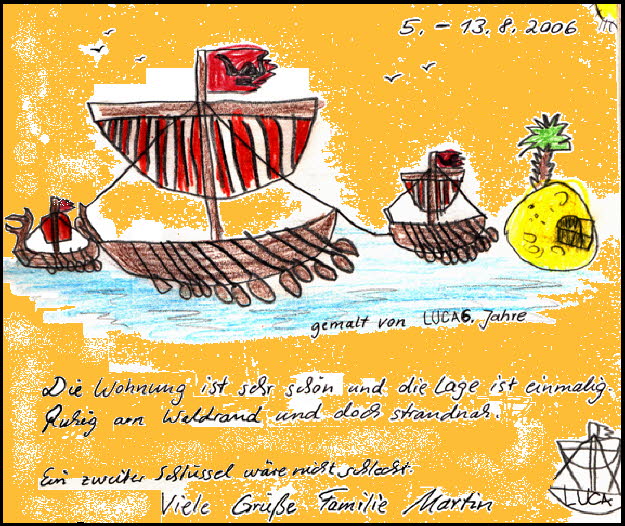 5. - 13.8.2006
gemalt von LUCA 6. Jahre
Die Wohnung ist sehr schön und die Lage ist einmalig.
Ruhig am Waldrand und doch strandnah.
Ein zweiter Schlüssel wäre nicht schlecht.
Viele Grüße Familie Martin
LUCA